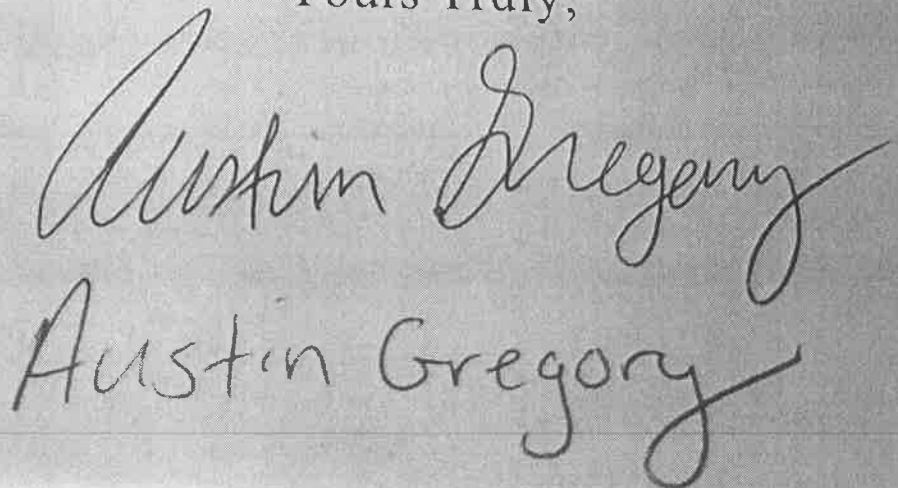 Yours Truly,
Austin Gregory
Austin Gregory